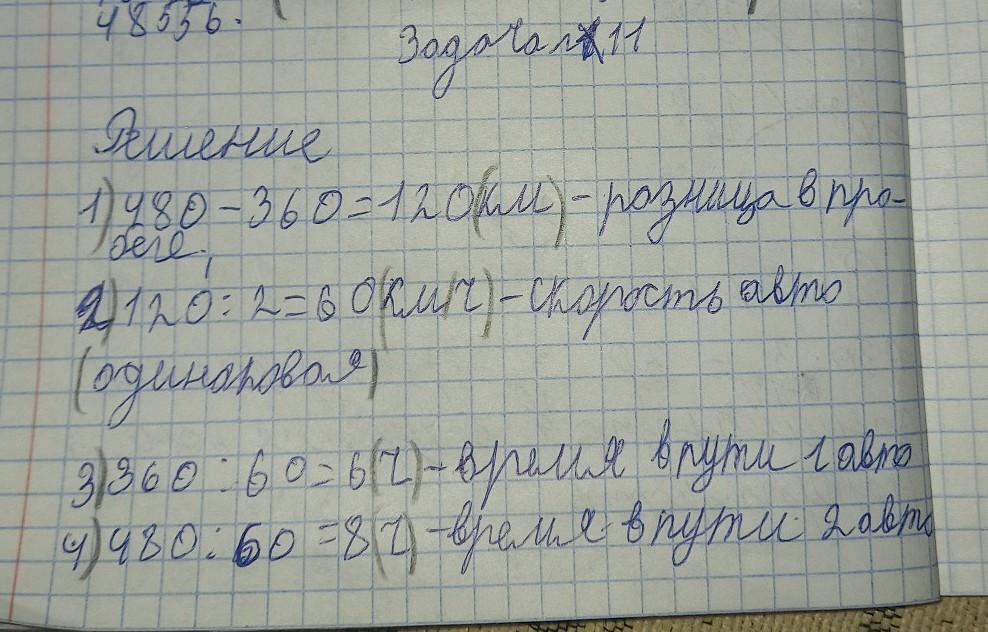 48536.
Задача №11
Решение
1) 480-360=120(км)-разница в про-
беге;
2) 120:2=60(км/ч)-скорость авто
(одинаровая)
3) 360:60=6(ч)-время в пути 1 авто
4) 480:60=8(ч)-время в пути 2 авто